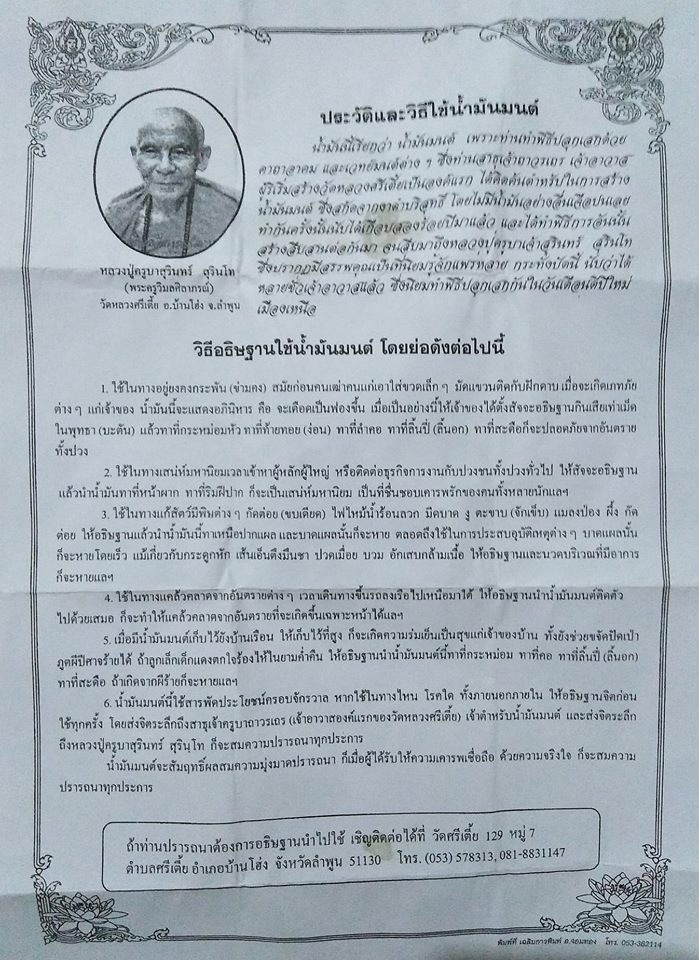 ประวัติและวิธีใช้น้ำมันมนต์
น้ำมันนี้เรียกว่า น้ำมันมนต์ เพราะท่านทำพิธีปลุกเสกด้วย
คาถาอาคม และเวทย์มนต์ต่าง ๆ ซึ่งท่านสาธุเจ้าถาวรเถร เจ้าอาวาส
ผู้ริเริ่มสร้างวัดหลวงศรีเตี้ยเป็นองค์แรก ได้คิดค้นตำหรับในการสร้าง
น้ำมันมนต์ ซึ่งสกัดจากงาดำบริสุทธิ์ โดยไม่มีน้ำมันอย่างอื่นเจือปนเลย
ทำกันครั้งนั้นนับได้เกือบสองร้อยปีมาแล้ว และได้ทำพิธีการอันนั้น
สร้างสืบสานต่อกันมา จนสืบมาถึงหลวงปู่ครูบาเจ้าสุรินทร์ สุรินโท
ซึ่งปรากฏมีสรรพคุณเป็นที่นิยมรู้จักแพร่หลาย กระทั่งปัดนี้ นับว่าได้
หลายชั่วเจ้าอาวาสแล้ว ซึ่งนิยมทำพิธีปลุกเสกกันในวันเดือนดีปีใหม่
เมืองเหนือ
หลวงปู่ครูบาสุรินทร์ สุรินโท
(พระครูวิมลศีลาภรณ์)
วัดหลวงศรีเตี้ย อ.บ้านโฮ่ง จ.ลำพูน
วิธีอธิษฐานใช้น้ำมันมนต์ โดยย่อดังต่อไปนี้
1. ใช้ในทางอยู่ยงคงกระพัน (ข่ามคง) สมัยก่อนคนเฒ่าคนแก่เอาใส่ขวดเล็ก ๆ มัดแขวนติดกับฝักดาบ เมื่อจะเกิดเภทภัย
ต่าง ๆ แก่เจ้าของ น้ำมันนี้จะแสดงอภินิหาร คือ จะเดือดเป็นฟองขึ้น เมื่อเป็นอย่างนี้ให้เจ้าของได้ตั้งสัจจะอธิษฐานกินเสียเท่าเม็ด
ในพุทธา (บะตัน) แล้วทาที่กระหม่อมหัว ทาที่ท้ายทอย (ง่อน) ทาที่ลำคอ ทาที่ลิ้นปี่ (ลิ้นอก) ทาที่สะดือก็จะปลอดภัยจากอันตราย
ทั้งปวง
2. ใช้ในทางเสน่ห์มหานิยมเวลาเข้าหาผู้หลักผู้ใหญ่ หรือติดต่อธุรกิจการงานกับปวงชนทั้งปวงทั่วไป ให้สัจจะอธิษฐาน
แล้วนำน้ำมันทาที่หน้าผาก ทาที่ริมฝีปาก ก็จะเป็นเสน่ห์มหานิยม เป็นที่ชื่นชอบเคารพรักของคนทั้งหลายนักแลฯ
3. ใช้ในทางแก้สัตว์มีพิษต่าง ๆ กัดต่อย (ขบเตียด) ไฟไหม้น้ำร้อนลวก มีดบาด งู ตะขาบ (จักเข็บ) แมลงป่อง ผึ้ง กัด
ต่อย ให้อธิษฐานแล้วนำน้ำมันนี้ทาเหนือปากแผล และบาดแผลนั้นก็จะหาย ตลอดถึงใช้ในการประสบอุบัติเหตุต่าง ๆ บาดแผลนั้น
ก็จะหายโดยเร็ว แม้เกี่ยวกับกระดูกหัก เส้นเอ็นตึงมึนชา ปวดเมื่อย บวม อักเสบกล้ามเนื้อ ให้อธิษฐานและนวดบริเวณที่มีอาการ
ก็จะหายแลฯ
4. ใช้ในทางแคล้วคลาดจากอันตรายต่าง ๆ เวลาเดินทางขึ้นรถลงเรือไปเหนือมาใต้ ให้อธิษฐานนำน้ำมันมนต์ติดตัว
ไปด้วยเสมอ ก็จะทำให้แคล้วคลาดจากอันตรายที่จะเกิดขึ้นเฉพาะหน้าได้แลฯ
5. เมื่อมีน้ำมันมนต์เก็บไว้ยังบ้านเรือน ให้เก็บไว้ที่สูง ก็จะเกิดความร่มเย็นเป็นสุขแก่เจ้าของบ้าน ทั้งยังช่วยขจัดปัดเป่า
ภูตผีปีศาจร้ายได้ ถ้าลูกเล็กเด็กแดงตกใจร้องไห้ในยามค่ำคืน ให้อธิษฐานนำน้ำมันมนต์นี้ทาที่กระหม่อม ทาที่คอ ทาที่ลิ้นปี่ (ลิ้นอก)
ทาที่สะดือ ถ้าเกิดจากผีร้ายก็จะหายแลฯ
6. น้ำมันมนต์นี้ใช้สารพัดประโยชน์ครอบจักรวาล หากใช้ในทางไหน โรคใด ทั้งภายนอกภายใน ให้อธิษฐานจิตก่อน
ใช้ทุกครั้ง โดยส่งจิตระลึกถึงสาธุเจ้าครูบาถาวรเถร (เจ้าอาวาสองค์แรกของวัดหลวงศรีเตี้ย) เจ้าตำหรับน้ำมันมนต์ และส่งจิตระลึก
ถึงหลวงปู่ครูบาสุรินทร์ สุรินฺโท ก็จะสมความปรารถนาทุกประการ
น้ำมันมนต์จะสัมฤทธิ์ผลสมความมุ่งมาดปรารถนา ก็เมื่อผู้ได้รับให้ความเคารพเชื่อถือ ด้วยความจริงใจ ก็จะสมความ
ปรารถนาทุกประการ
ถ้าท่านปรารถนาต้องการอธิษฐานนำไปใช้ เชิญติดต่อได้ที่ วัดศรีเตี้ย 129 หมู่ 7
ตำบลศรีเตี้ย อำเภอบ้านโฮ่ง จังหวัดลำพูน 51130 โทร. (053) 578313, 081-8831147
พิมพ์ที่ เฉลิมการพิมพ์ อ.จอมทอง โทร. 053-362114